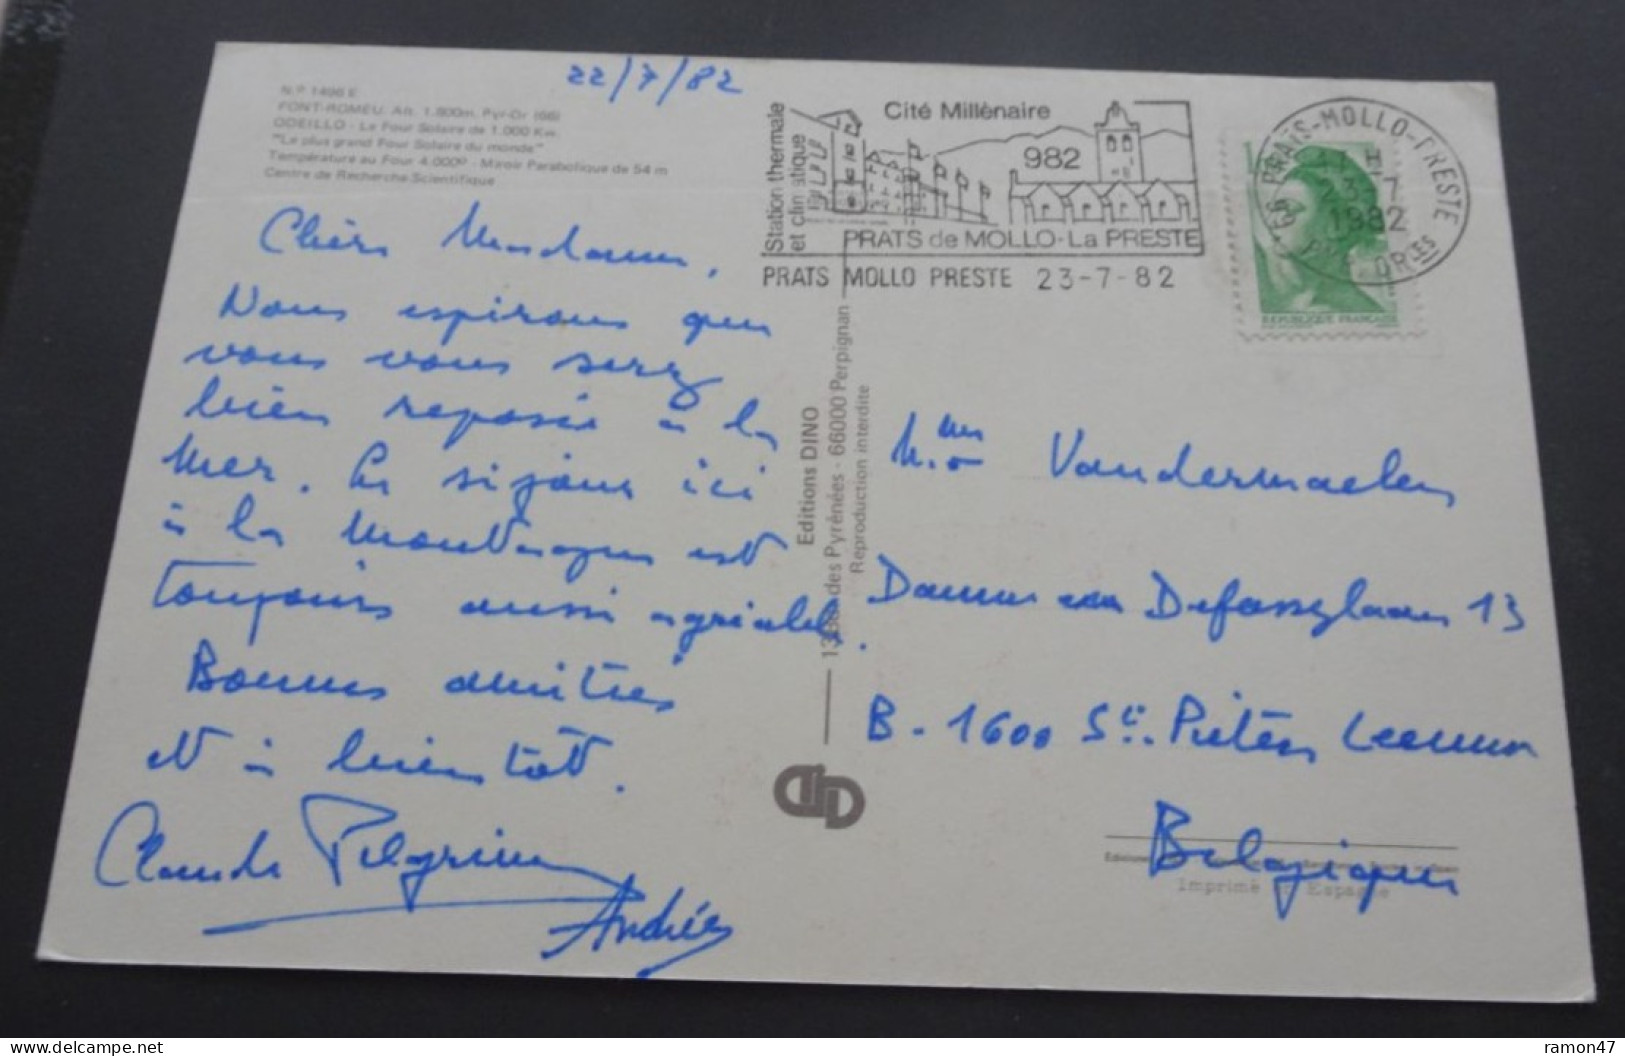 22/7/82
N° 1496 E
FONT-ROMEU. Alt. 1.800m. Pyr-Or (66)
ODEILLO - Le Four Solaire de 1.000 Kw.
"Le plus grand Four Solaire du monde"
Température au Four 4.000° - Miroir Parabolique de 54 m
Centre de Recherche Scientifique
Chère Madame,
Nous espérons que
vous vous serez
bien reposée à la
mer. Le séjour ici
à la montagne est
toujours aussi agréable.
Bonnes amitiés
et à bientôt.
Claude Pelgrims
Andrée
Station thermale
et climatique
Cité Millénaire
982
PRATS de MOLLO-La PRESTE
PRATS MOLLO PRESTE 23-7-82
PRATS-MOLLO-PRESTE
23-7
1982
OR.LES
REPUBLIQUE FRANÇAISE
Editions DINO
des Pyrénées - 66000 Perpignan
Reproduction interdite
Vandermaelen
13
B - 1600 St. Pieters Leeuw
Belgique
Imprimé en Espagne
delcampe.net
ramon47